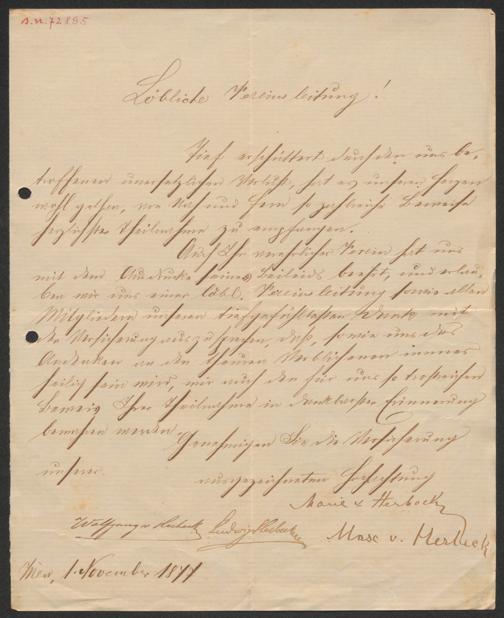 I.N. 72885
Löbliche Vereinsleitung!
Tief erschüttert durch den uns be-
troffenen unersetzlichen Verlust, hat es unseren Herzen
wohl gethan, von Nah und Fern so zahlreiche Beweise
herzlichster Theilnahme zu empfangen.
Auch Ihr verehrlicher Verein hat uns
mit dem Ausdrucke seines Beileids beehrt, und erlau-
ben wir uns einer löbl. Vereinsleitung sowie allen
Mitgliedern unseren tiefgefühltesten Dank mit
der Versicherung auszusprechen, daß, sowie uns das
Andenken an den theuren Verblichenen immer
heilig sein wird, wir auch den für uns so trostreichen
Beweis Ihrer Theilnahme in dankbarster Erinnerung
bewahren werden.
Genehmigen Sie die Versicherung
unserer
ausgezeichneten Hochachtung
Marie v Herbeck
Wolfgang v Herbeck Ludwig v Herbeck Max v. Herbeck
Wien, 1. November 1877